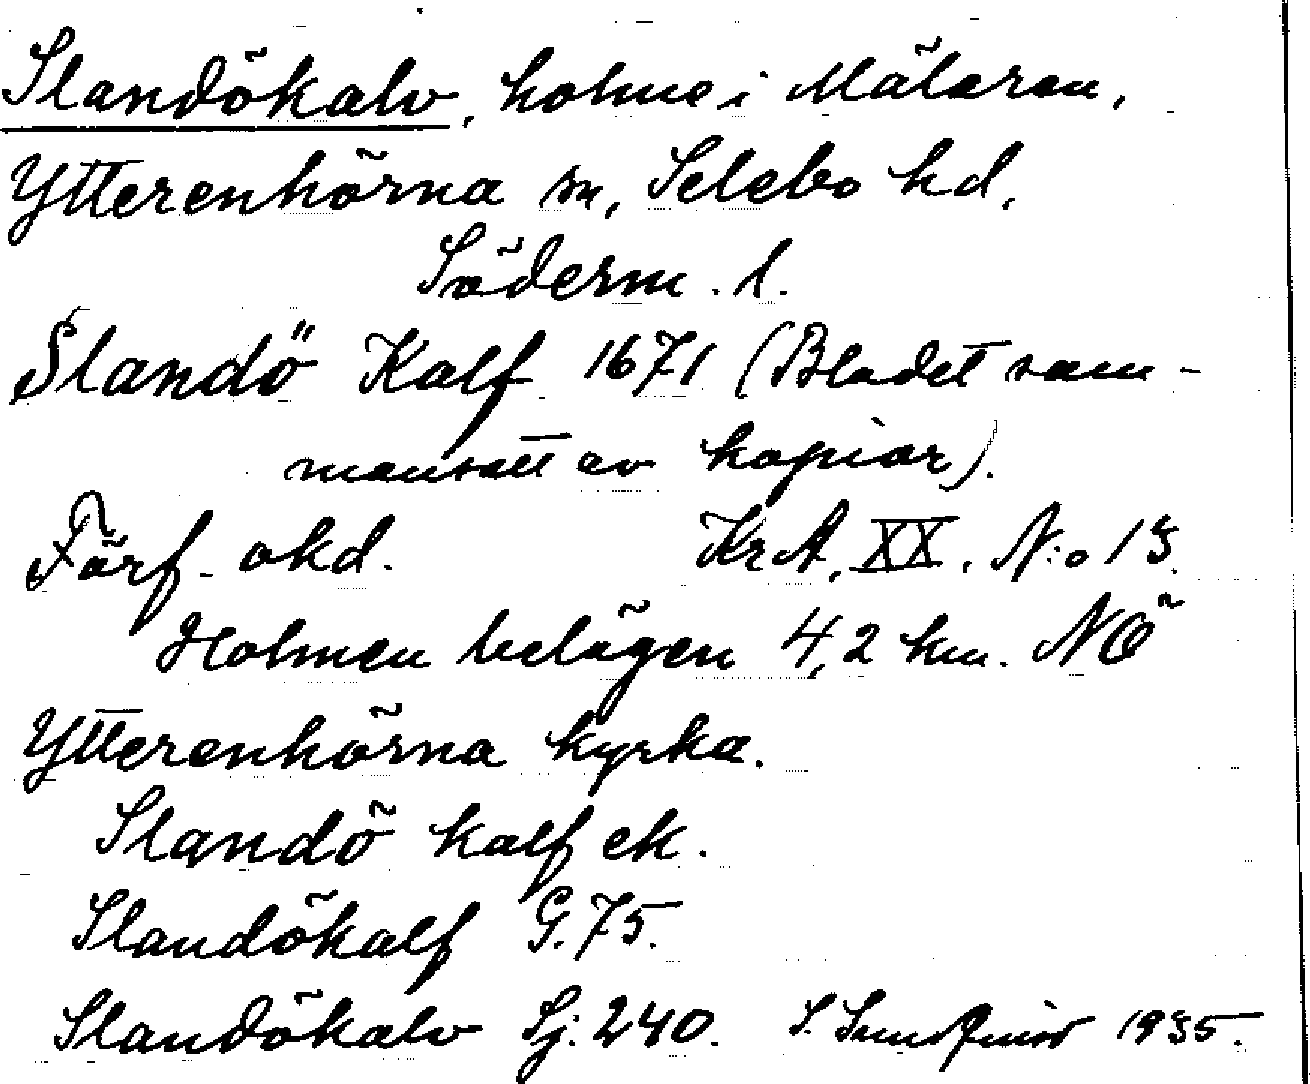 Slandökalv, holme i Mälaren,
Ytterenhörna sn, Selebo hd,
Söderm. l.
Slandö Kalf 1671 (Bladet sam-
mansatt av kopior).
Förf. okd. KrA, XX, N:o 13.
Holmen belägen 4,2 km. NÖ
Ytterenhörna kyrka.
Slandö kalf ek.
Slandökalf G. 75.
Slandökalv Sj: 240. S. 1935.